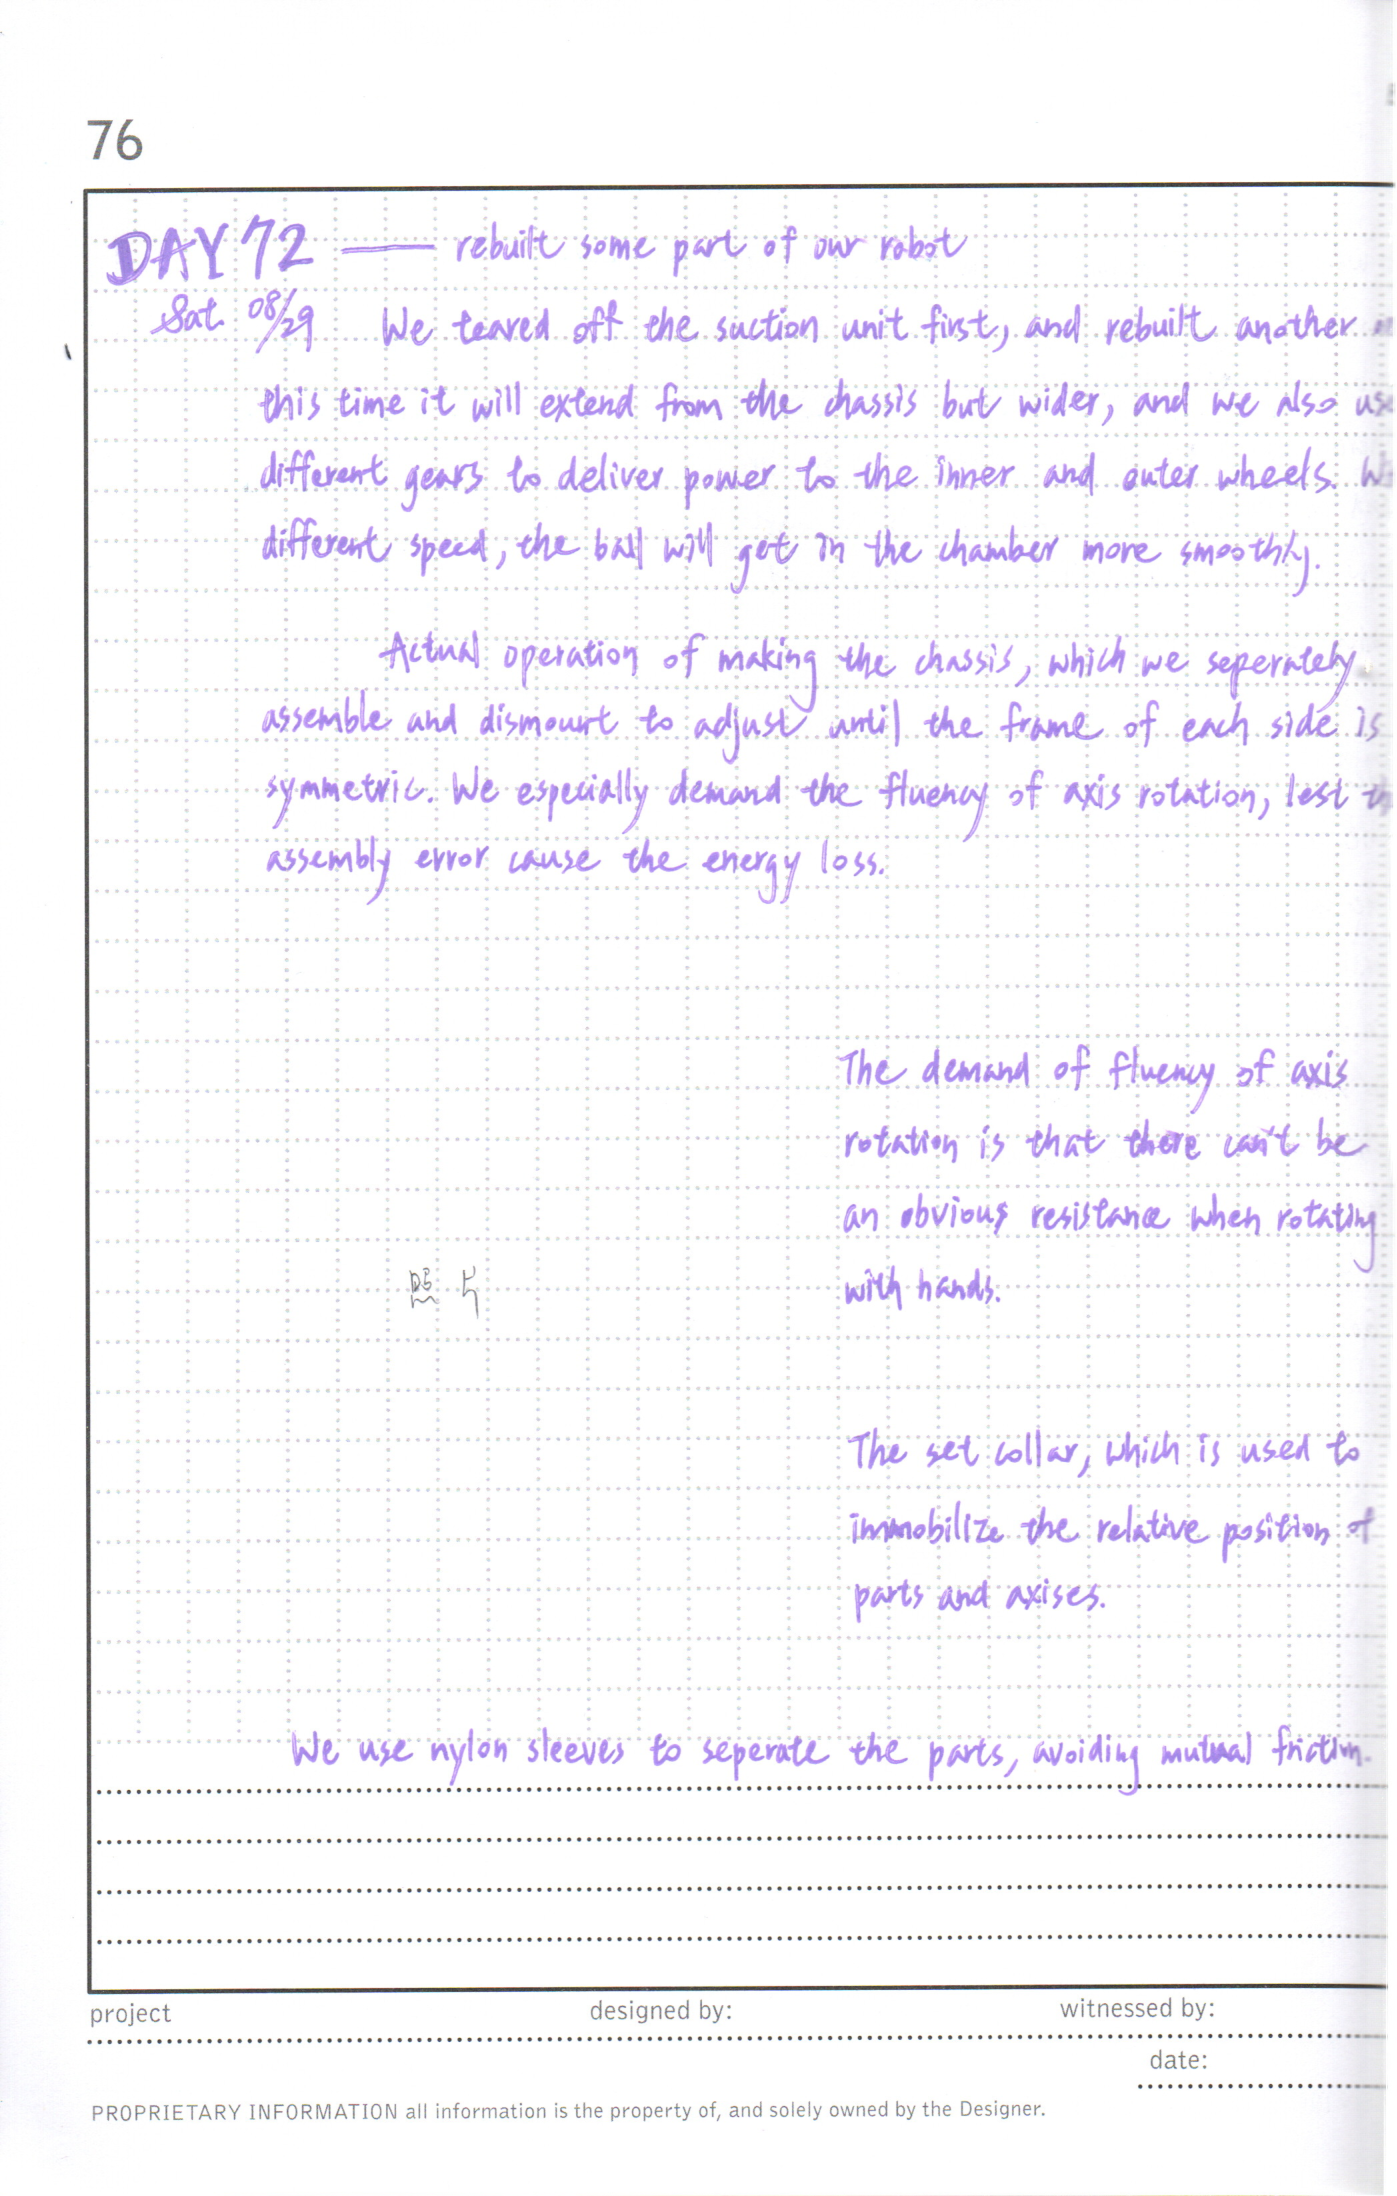 76
DAY 72 — rebuilt some part of our robot
Sat. 08/29 We teared off the suction unit first, and rebuilt another
this time it will extend from the chassis but wider, and we also
different gears to deliver power to the inner and outer wheels.
different speed, the ball will get in the chamber more smoothly.
Actual operation of making the chassis, which we seperately
assemble and dismount to adjust until the frame of each side is
symmetric. We especially demand the fluency of axis rotation, lest
assembly error cause the energy loss.
The demand of fluency of axis
rotation is that there can't be
an obvious resistance when rotating
with hands.
照片
The set collar, which is used to
immobilize the relative position of
parts and axises.
We use nylon sleeves to seperate the parts, avoiding mutual friction.
project designed by: witnessed by:
date:
PROPRIETARY INFORMATION all information is the property of, and solely owned by the Designer.